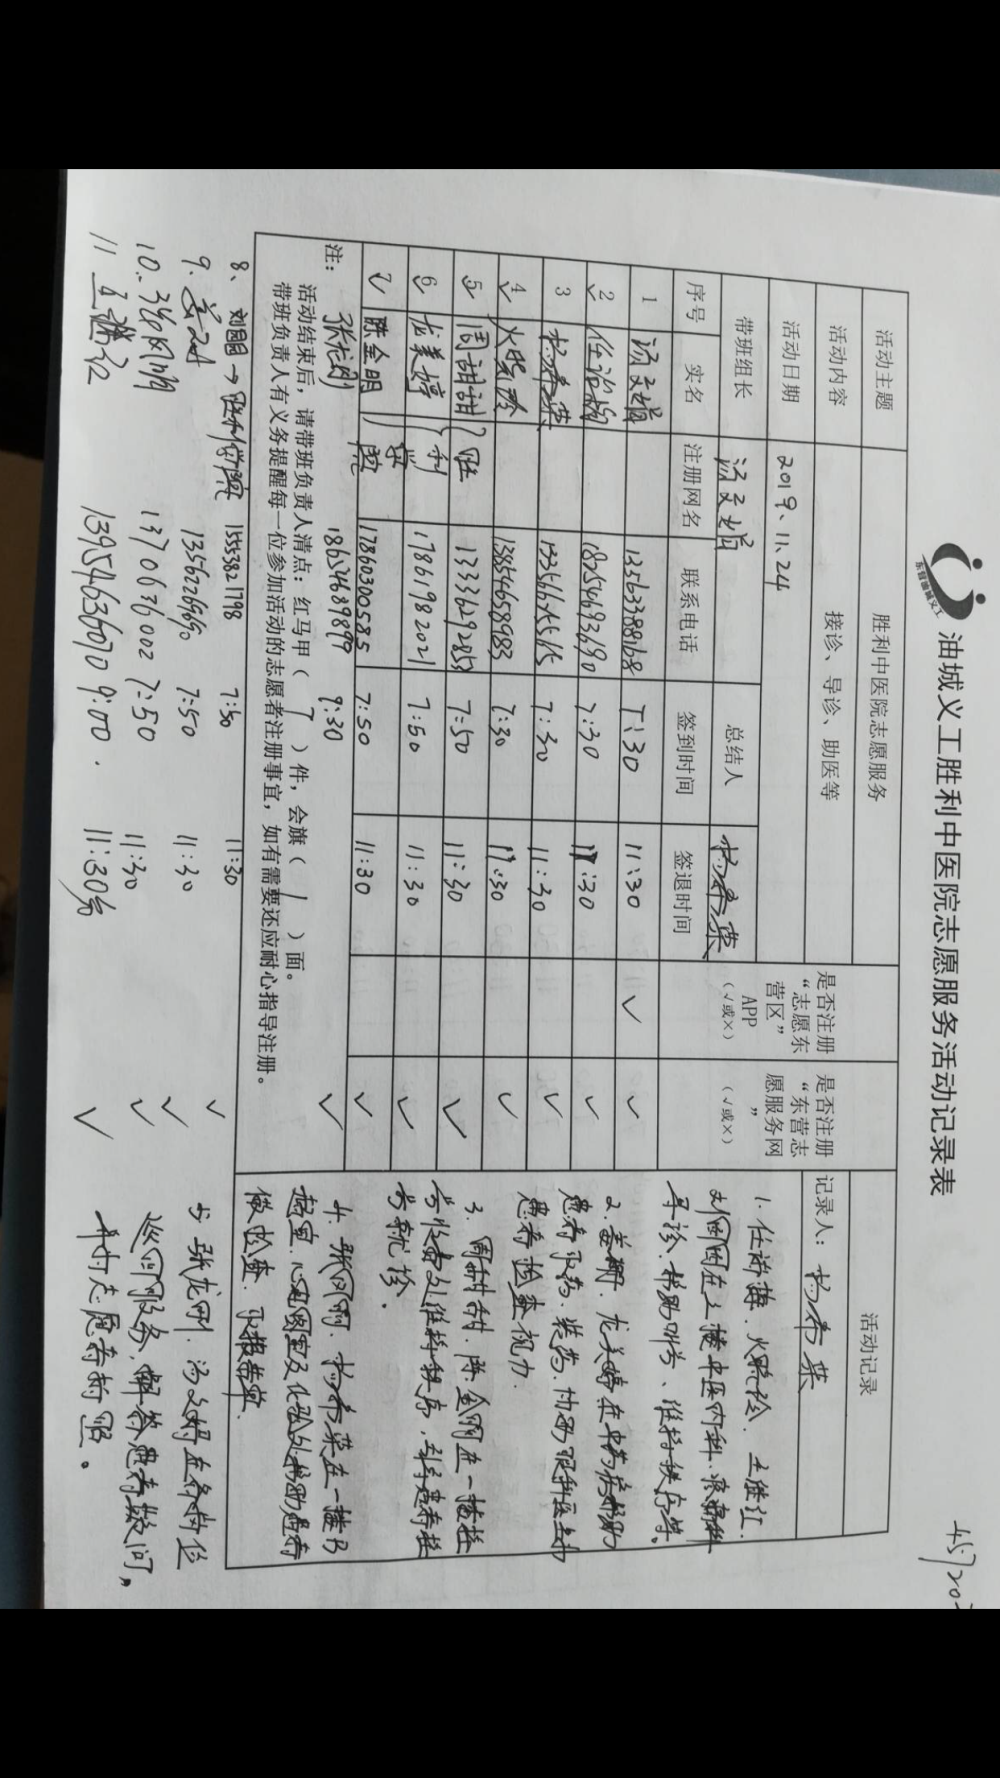 457202
东营油城义工
油城义工胜利中医院志愿服务活动记录表
活动主题 胜利中医院志愿服务 活动记录
活动内容 接诊、导诊、助医等
活动日期 2019、11、24
是否注册“志愿东营区”APP(√或×)
是否注册“东营志愿服务网”(√或×)
记录人:
带班组长 汤文娟 总结人
序号 实名 注册网名 联系电话 签到时间 签退时间
1 汤文娟 13563388168 7:30 11:30 ✓ ✓
2 18254693690 7:30 11:30 ✓
3 13356655565 7:30 11:30 ✓
4 13854658983 7:30 11:30 ✓
5 周甜甜 胜 13336292853 7:50 11:30 ✓
6 龙美婷 利 17861982021 7:50 11:30 ✓
7 陈金明 院 17860300585 7:50 11:30 ✓
注: 张龙刚 18634689899 9:30 ✓
活动结束后,请带班负责人清点:红马甲( 7 )件,会旗( 1 )面。
带班负责人有义务提醒每一位参加活动的志愿者注册事宜,如有需要还应耐心指导注册。
8、刘圆圆→胜利 院 15553821798 7:50 11:30 ✓
9. 13562266690 7:50 11:30 ✓
10. 13706376002 7:50 11:30 ✓
11 王 13954636070 9:00. 11:30分 ✓
1. 任 、火 、王胜江.
刘圆圆在二楼中医内科.
导诊.帮助叫号、维持秩序等。
2. 姜 . 龙美婷在中药房帮助
患者取药.装药.协助眼科医生为
患者检查视力.
3. 周甜甜.陈金明在一楼挂
号收费处维持秩序,引导患者挂
号就诊.
4. 张 . 在一楼B
超室.心电图室及化验处帮助患者
做检查.取报告单.
5. 张龙刚.汤文娟在各岗位
巡回服务.解答患者疑问,
并为志愿者拍照。